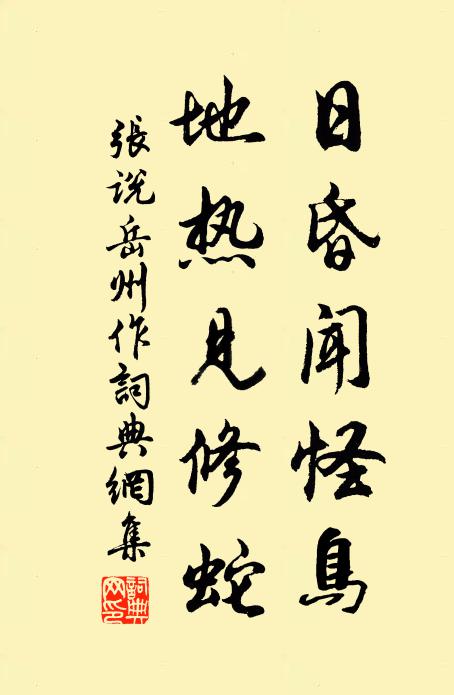 日昏闻怪鳥
地热见修蛇
張说岳州作詞典網集
詞典网印